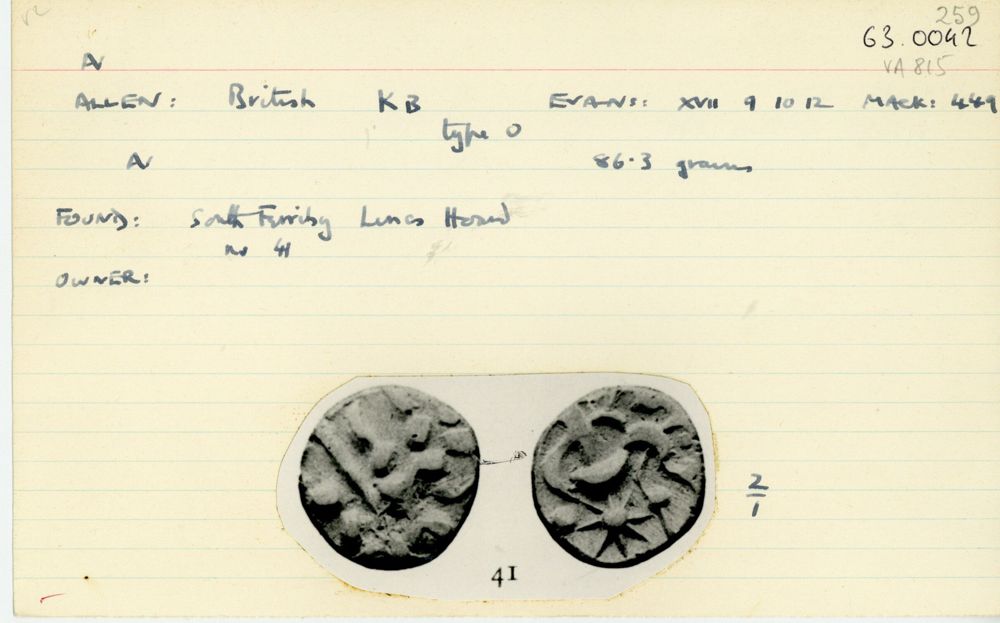 259
63.0042
VA 815
AV
ALLEN: British KB EVANS: XVII 9 10 12 MACK: 449
type O
AV 86.3 grains
FOUND: South Ferriby Lincs Hoard
no 41
OWNER:
2/1
41